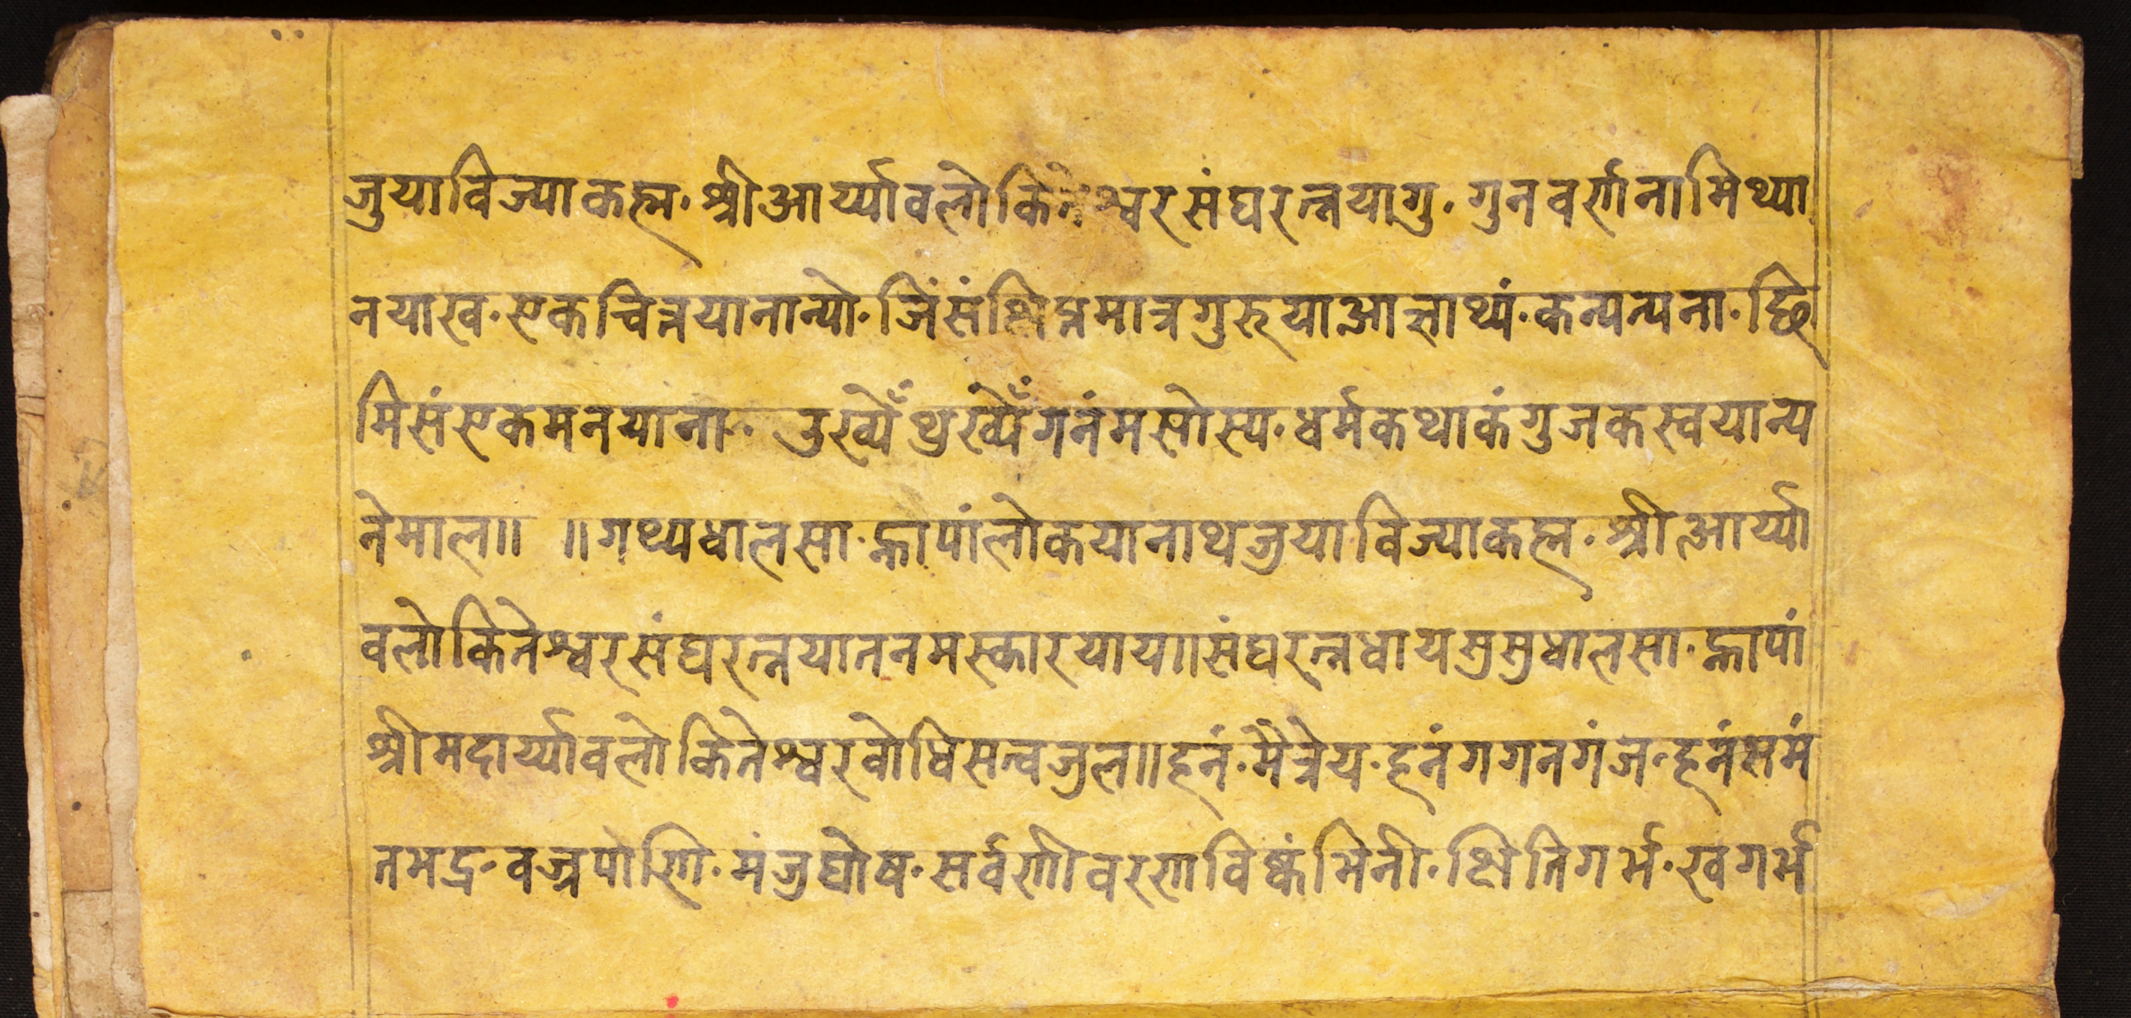 जुयाविज्याकह्म· श्रीआर्य्यावलोकितेश्वरसंघरत्नयागु· गुनवर्णनामिथ्या
नयाख· एकचित्तयानान्यो· जिंसंक्षिप्तमात्रगुरुयाआज्ञाथ्यं· कन्यन्यना· छि
मिसंएकमनयाना· उख्येँथुख्येँगनंमसोस्य· धर्मकथाकंगुजकस्वयान्य
नेमाल॥ ॥गथ्यधालसा· ह्नापांलोकयानाथजुयाविज्याकह्म· श्रीआर्य्या
वलोकितेश्वरसंघरत्नयातनमस्कारयाय॥संघरत्नधायसुसुधालसा· ह्नापां
श्रीमदार्य्यावलोकितेश्वरबोधिसत्वजुल॥हनं· मैत्रेय· हनंगगनगंज· हनंसमं
तभद्र· वज्रपाणि· मंजुघोष· सर्वर्णीवरणविष्कंभिनी· क्षितिगर्भ· खगर्भ